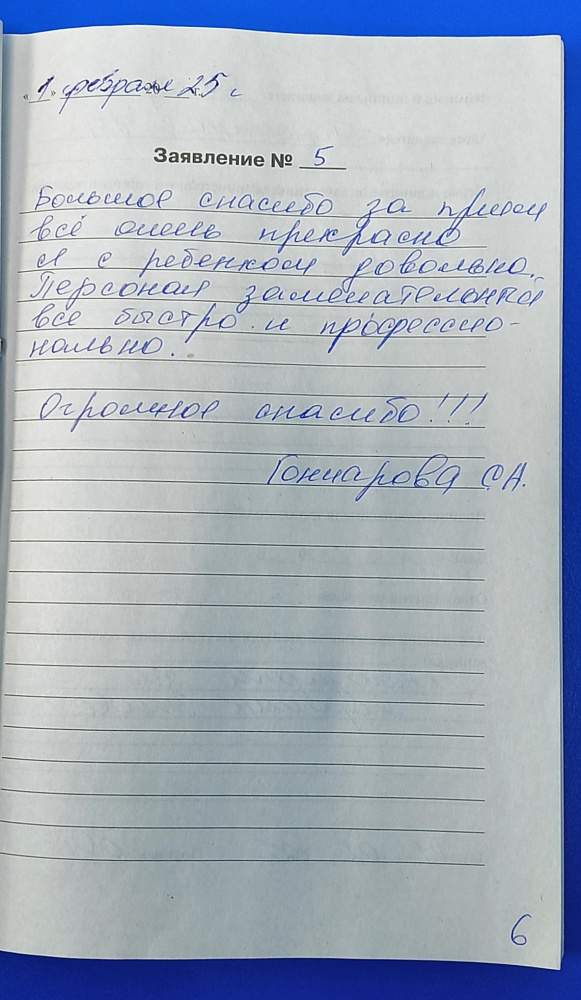 «1» февраля 25 г.
Заявление № 5
Большое спасибо за прием
всё очень прекрасно
Я с ребенком довольна.
Персонал замечательный
все быстро и профессио-
нально.
Огромное спасибо!!!
Гончарова С.А.
6